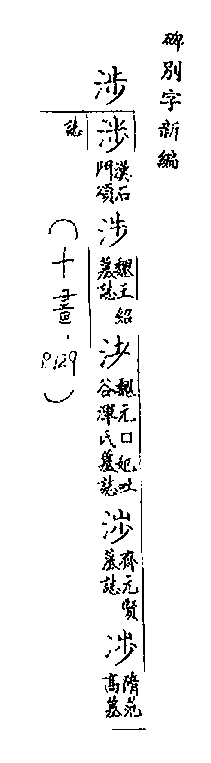 碑別字新編
涉
涉漢石門頌
涉魏王紹墓誌
涉魏元囗妃吐谷渾氏墓誌
涉齊元賢墓誌
涉隋范高墓
誌
(十畫·P.129)